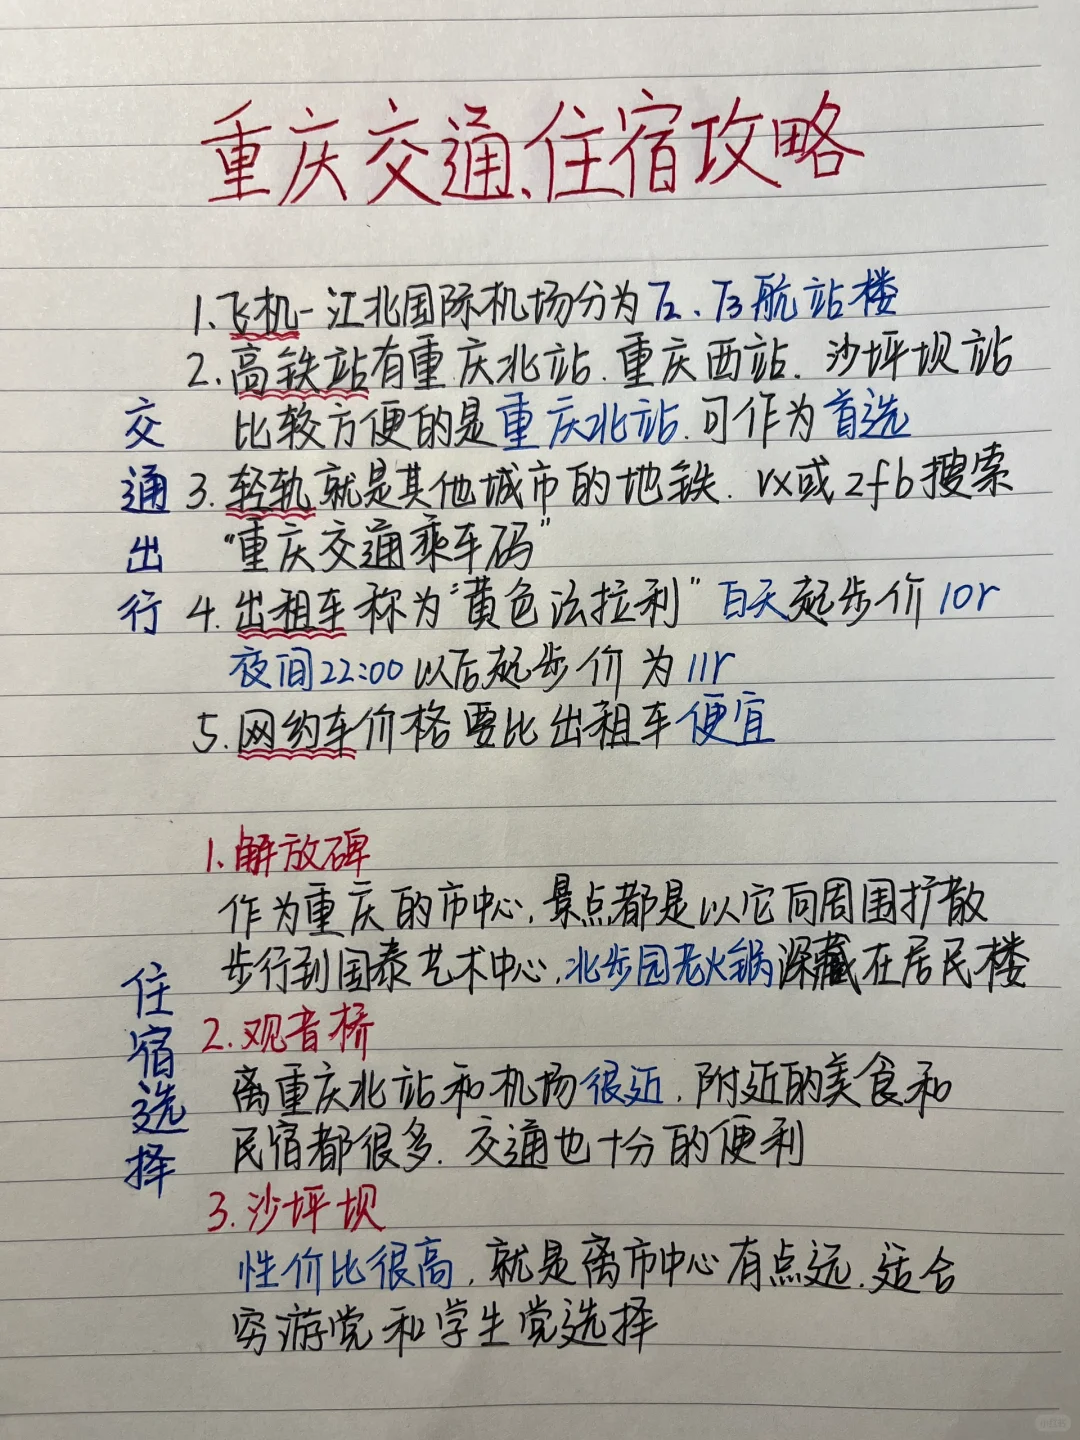 重庆交通、住宿攻略
交通出行
1.飞机-江北国际机场分为T2、T3航站楼
2.高铁站有重庆北站.重庆西站.沙坪坝站
比较方便的是重庆北站.可作为首选
3.轻轨就是其他城市的地铁.vx或zfb搜索
“重庆交通乘车码”
4.出租车称为“黄色法拉利”白天起步价10r
夜间22:00以后起步价为11r
5.网约车价格要比出租车便宜
住宿选择
1.解放碑
作为重庆的市中心,景点都是以它向周围扩散
步行到国泰艺术中心,北步园老火锅深藏在居民楼
2.观音桥
离重庆北站和机场很近.附近的美食和
民宿都很多.交通也十分的便利
3.沙坪坝
性价比很高.就是离市中心有点远.适合
穷游党和学生党选择
小红书